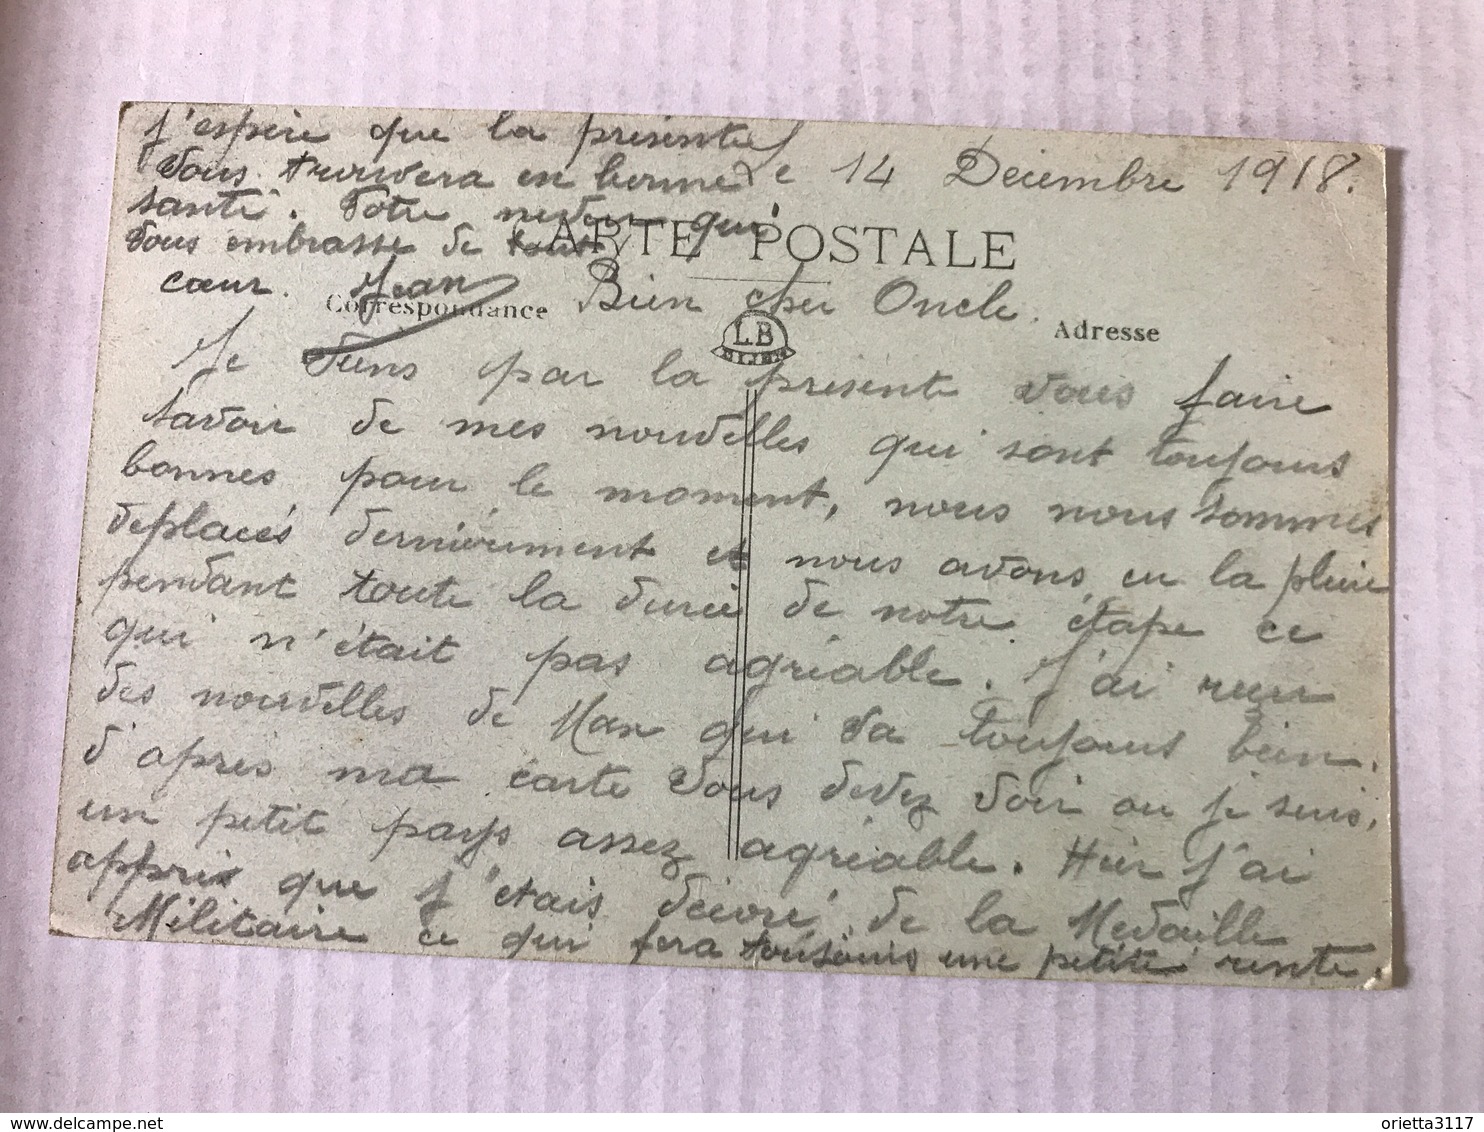 Le 14 Décembre 1918.
CARTE POSTALE
Bien cher Oncle.
Correspondance
Adresse
LB
DIJON
Je viens par la présente vous faire
savoir de mes nouvelles qui sont toujours
bonnes pour le moment, nous nous sommes
deplacés dernièrement et nous avons eu la pluie
pendant toute la durée de notre étape ce
qui n'était pas agréable. J'ai reçu
des nouvelles de Max qui va toujours bien.
d'après ma carte vous devez voir ou je suis,
un petit pays assez agréable. Hier j'ai
appris que j'étais décoré de la Medaille
Militaire ce qui fera toujours une petite rente.
J'espère que la présente
vous trouvera en bonne
santé. Votre neveu qui
vous embrasse de tout
cœur. Jean
delcampe.net
orietta3117